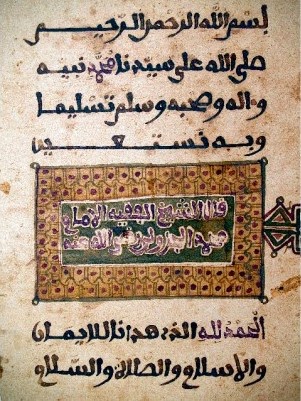 بسم الله الرحمن الرحيم
صلى الله على سيدنا محمد نبيه
وءاله وصحبه وسلم تسليما
وبه نستعين
قال الشيخ الفقيه الإمام
الجزولي رضي الله عنه
الحمد لله الذي هدانا للإيمان
والإسلام والصلاة والسلام